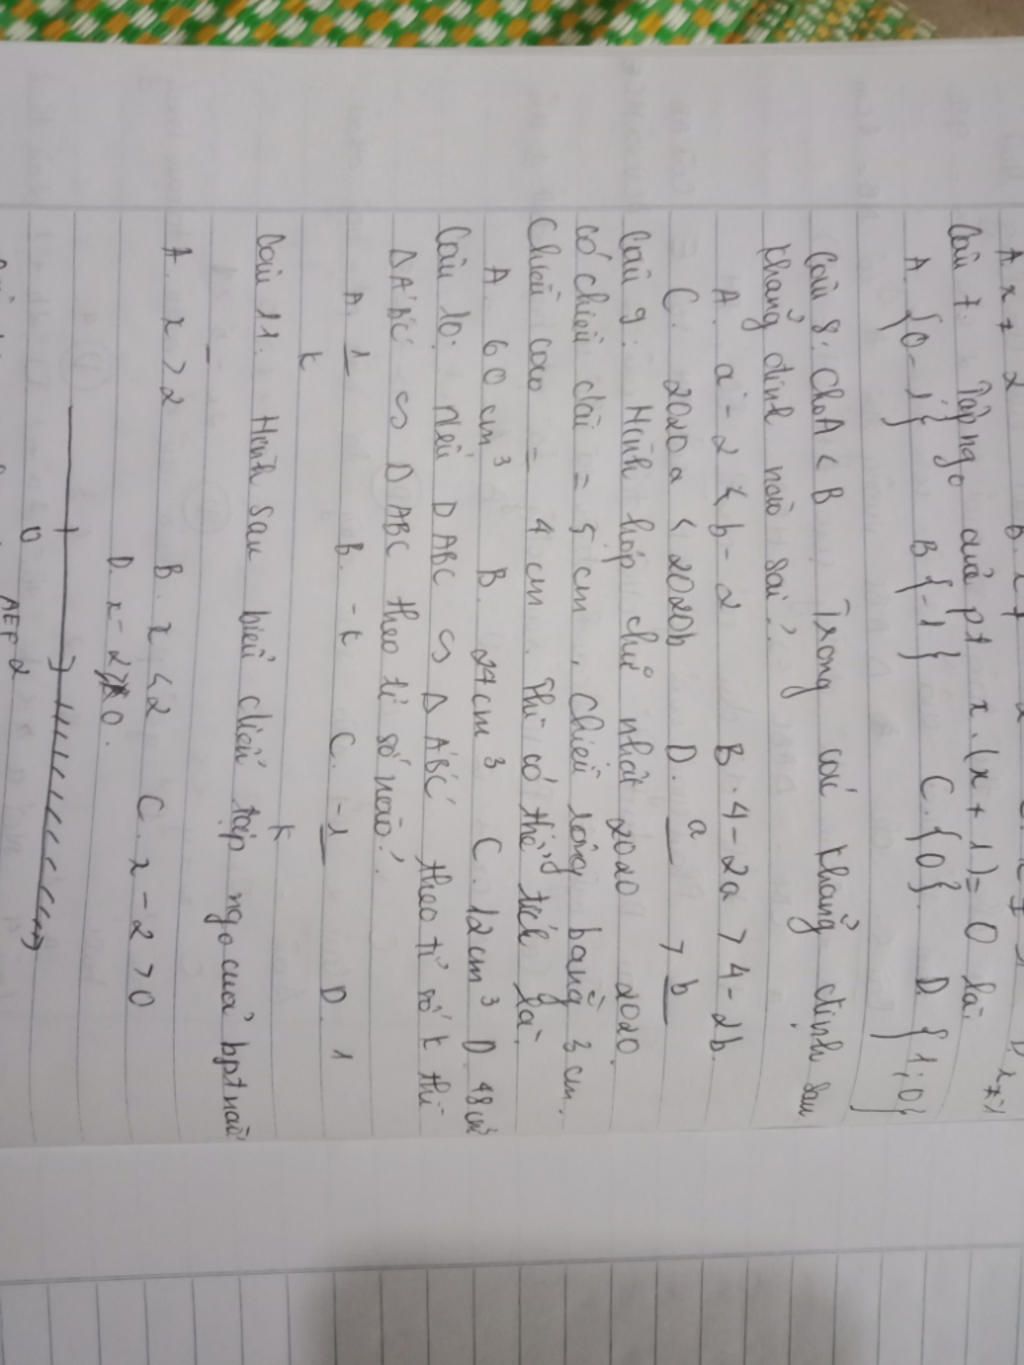 A. x ≠ 2
Câu 7. Tập ngo quả pt x.(x + 1) = 0 là:
A. {0 - 1} B {-1} C. {0}. D {1; 0}
Câu 8. Cho A < B Trong các khẳng định sau
khẳng định nào sai?
A. a - 2 < b - 2 B. 4 - 2a > 4 - 2b.
C. 2020a < 2020b D. a/2020 > b/2020.
Câu 9. Hình hộp chữ nhật
có chiều dài = 5 cm, chiều rộng bằng 3 cm,
chiều cao = 4 cm. Thì có thể tích là.
A. 60 cm³ B. 24cm³ C. 12cm³ D. 48cm³
Câu 10. Nếu D ABC ∽ Δ A'B'C' theo tỉ số k thì
ΔA'B'C' ∽ D ABC theo tỉ số nào?
A. 1/k B. -k C. -1/k D. 1
Câu 11. Hình sau biểu diễn tập ngo của bpt nào
A. x > 2 B. x < 2 C. x - 2 > 0
D. x - 2 ≥ 0.
0 2